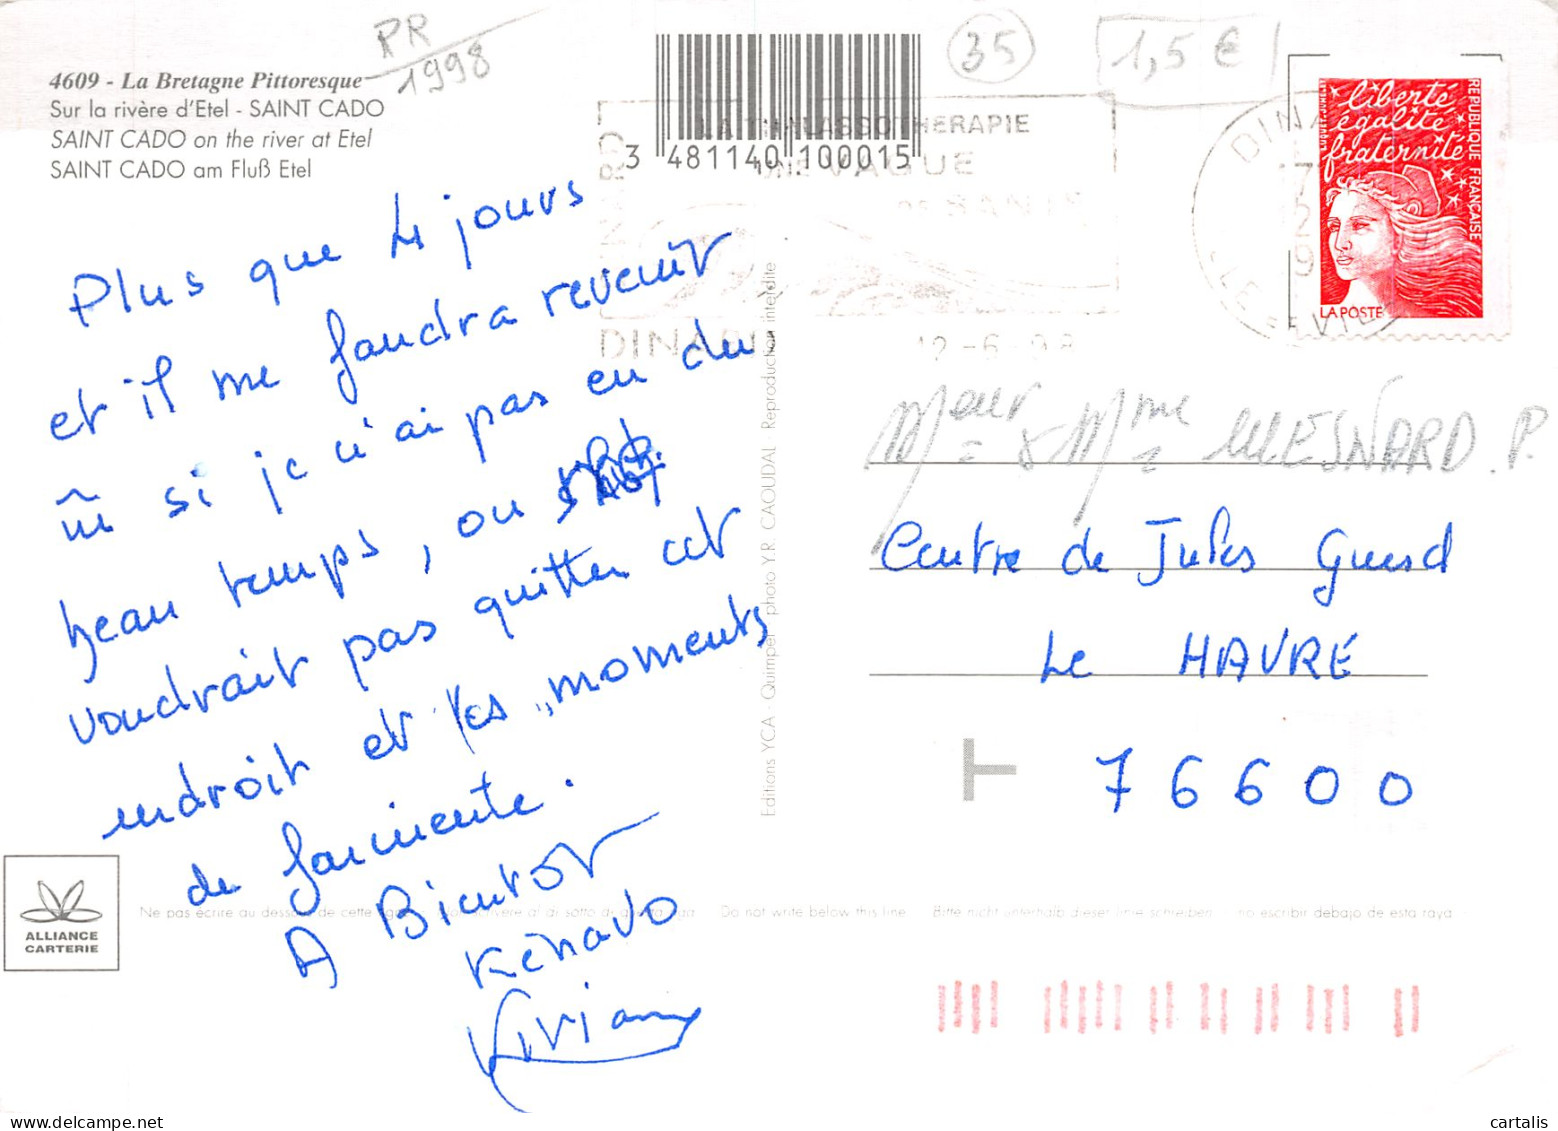 4609 - La Bretagne Pittoresque
Sur la rivère d'Etel - SAINT CADO
SAINT CADO on the river at Etel
SAINT CADO am Fluß Etel
PR
1998
35
1,5 €
3 481140 100015
LA THALASSOTHERAPIE
UNE VAGUE
DE SANTE
DINARD
12-6-98
liberté
égalité
fraternité
REPUBLIQUE FRANÇAISE
LA POSTE
Plus que 4 jours
et il me faudra revenir
ni si je n'ai pas eu du
beau temps, on
voudrait pas quitter cet
endroit et les "moments
de farniente.
A Bientôt
Kenavo
Viviane
Editions YCA - Quimper - photo Y.R. CAOUDAL Reproduction interdite
Meur & Mme MESNARD. P.
Centre de Jules Guesd
Le HAVRE
76600
ALLIANCE
CARTERIE
Ne pas écrire au dessous de cette ligne Non scrivere al di sotto di questa riga Do not write below this line Bitte nicht unterhalb dieser linie schreiben no escribir debajo de esta raya
cartalis